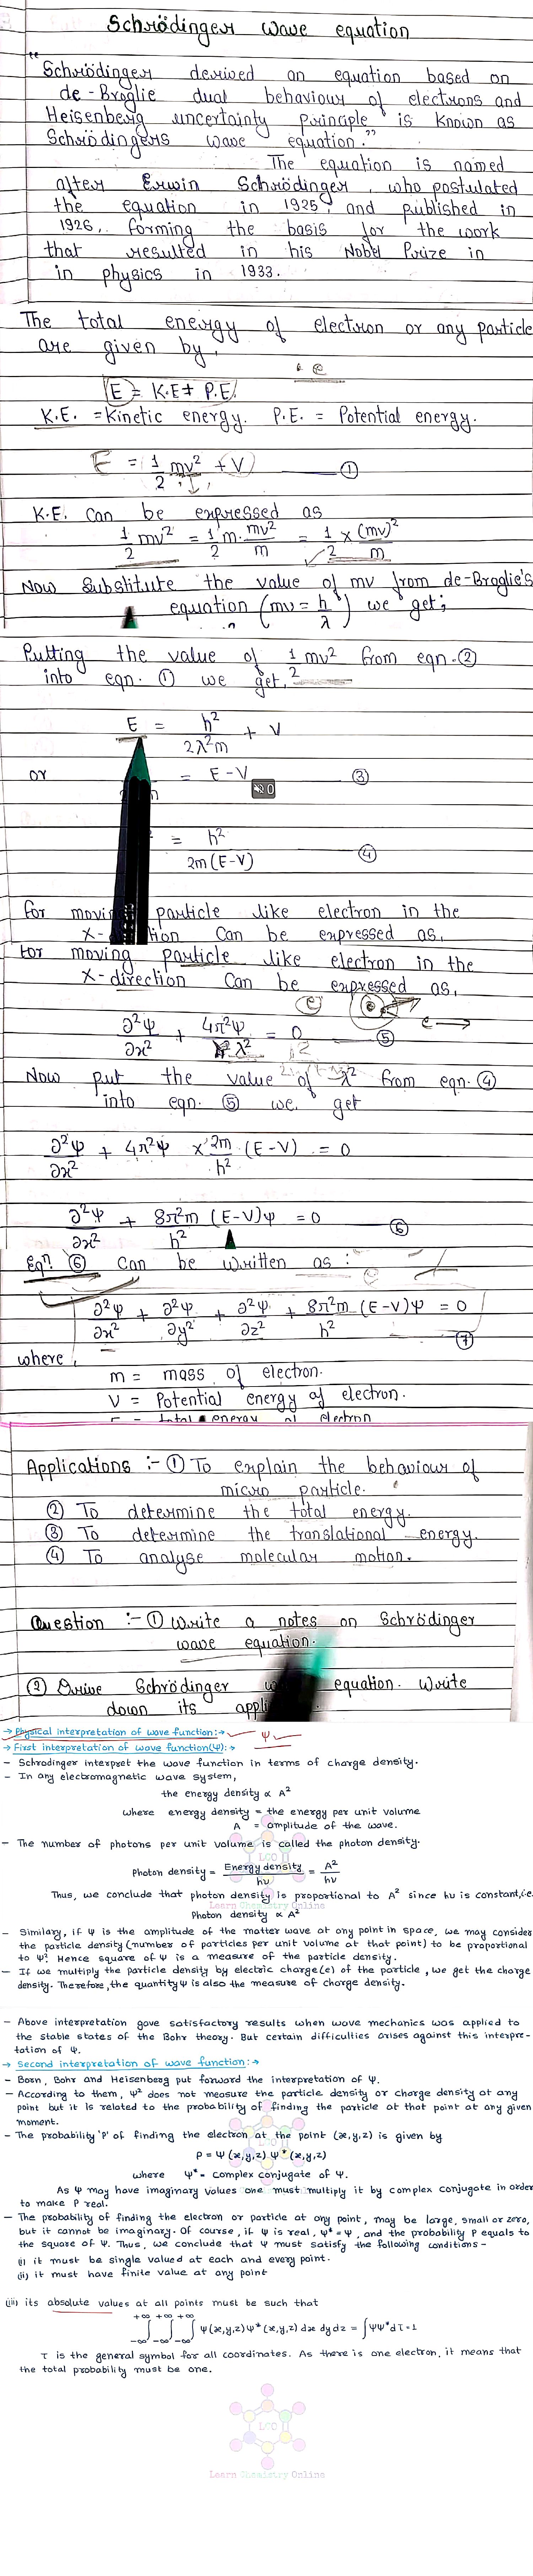 Schrödinger wave equation
"Schrödinger derived an equation based on
de-Broglie dual behaviour of electrons and
Heisenberg uncertainty principle is known as
Schrödingers wave equation."
The equation is named
after Erwin Schrödinger, who postulated
the equation in 1925, and published in
1926, forming the basis for the work
that resulted in his Nobel Prize in
in physics in 1933.
The total energy of electron or any particle
are given by,
e
E = K.E + P.E.
K.E. = Kinetic energy. P.E. = Potential energy.
E = 1/2 mv² + V ①
K.E. can be expressed as
1/2 mv² = 1/2 m. mv²/m = 1/2 × (mv)²/m
Now Substitute the value of mv from de-Broglie's
equation (mv = h/λ) we get;
Putting the value of 1/2 mv² from eqn.②
into eqn. ① we get,
E = h²/2λ²m + V
or = E-V ③
20
= h²/2m(E-V) ④
for moving particle like electron in the
x-direction can be expressed as,
for moving particle like electron in the
x-direction can be expressed as,
e
e
∂²Ψ/∂x² + 4π²Ψ/λ² = 0 ⑤
Now put the value of λ² from eqn. ④
into eqn. ⑤ we get
∂²Ψ/∂x² + 4π²Ψ × 2m/h² (E-V) = 0
∂²Ψ/∂x² + 8π²m/h² (E-V)Ψ = 0 ⑥
Eqn. ⑥ can be written as :
∂²Ψ/∂x² + ∂²Ψ/∂y² + ∂²Ψ/∂z² + 8π²m/h² (E-V)Ψ = 0 ⑦
where,
m = mass of electron.
V = Potential energy of electron.
E = total energy of electron
Applications :- ① To explain the behaviour of
micro particle.
② To determine the total energy.
③ To determine the translational energy.
④ To analyse molecular motion.
Question :- ① Write a notes on Schrödinger
wave equation.
② Drive Schrödinger equation. Write
down its
→ Physical interpretation of wave function:→ Ψ
→ First interpretation of wave function(Ψ):→
- Schrodinger interpret the wave function in terms of charge density.
- In any electromagnetic wave system,
the energy density ∝ A²
where energy density = the energy per unit volume
A = amplitude of the wave.
- The number of photons per unit volume is called the photon density.
Photon density = Energy density/hν = A²/hν
Thus, we conclude that photon density is proportional to A² since hν is constant, i.e.
Photon density ∝ A²
- Similary, if Ψ is the amplitude of the matter wave at any point in space, we may consider
the particle density (number of particles per unit volume at that point) to be proportional
to Ψ². Hence square of Ψ is a measure of the particle density.
- If we multiply the particle density by electric charge(e) of the particle, we get the charge
density. Therefore, the quantity Ψ is also the measure of charge density.
LCO
Learn Chemistry Online
- Above interpretation gave satisfactory results when wave mechanics was applied to
the stable states of the Bohr theory. But certain difficulties arises against this interpre-
tation of Ψ.
→ Second interpretation of wave function:→
- Born, Bohr and Heisenberg put forward the interpretation of Ψ.
- According to them, Ψ² does not measure the particle density or charge density at any
point but it is related to the probability of finding the particle at that point at any given
moment.
- The probability 'P' of finding the electron at the point (x,y,z) is given by
P = Ψ(x,y,z) Ψ*(x,y,z)
where Ψ* = complex conjugate of Ψ.
As Ψ may have imaginary values one must multiply it by complex conjugate in order
to make P real.
- The probability of finding the electron or particle at any point, may be large, small or zero,
but it cannot be imaginary. Of course, if Ψ is real, Ψ* = Ψ, and the probability P equals to
the square of Ψ. Thus, we conclude that Ψ must satisfy the following conditions-
(i) it must be single valued at each and every point.
(ii) it must have finite value at any point
(iii) its absolute values at all points must be such that
+∞ +∞ +∞
∫ ∫ ∫ Ψ(x,y,z)Ψ*(x,y,z) dx dy dz = ∫ΨΨ*dτ = 1
-∞ -∞ -∞
τ is the general symbol for all coordinates. As there is one electron, it means that
the total probability must be one.
LCO
Learn Chemistry Online